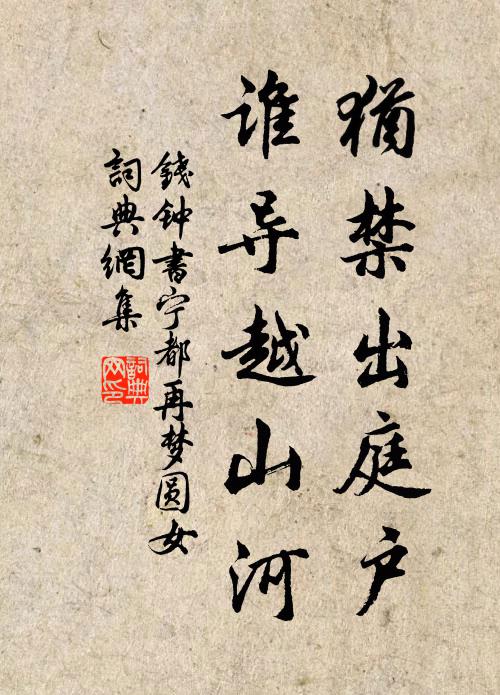 猶禁出庭户
谁导越山河
錢钟書宁都再梦圆女
詞典網集
詞典网印